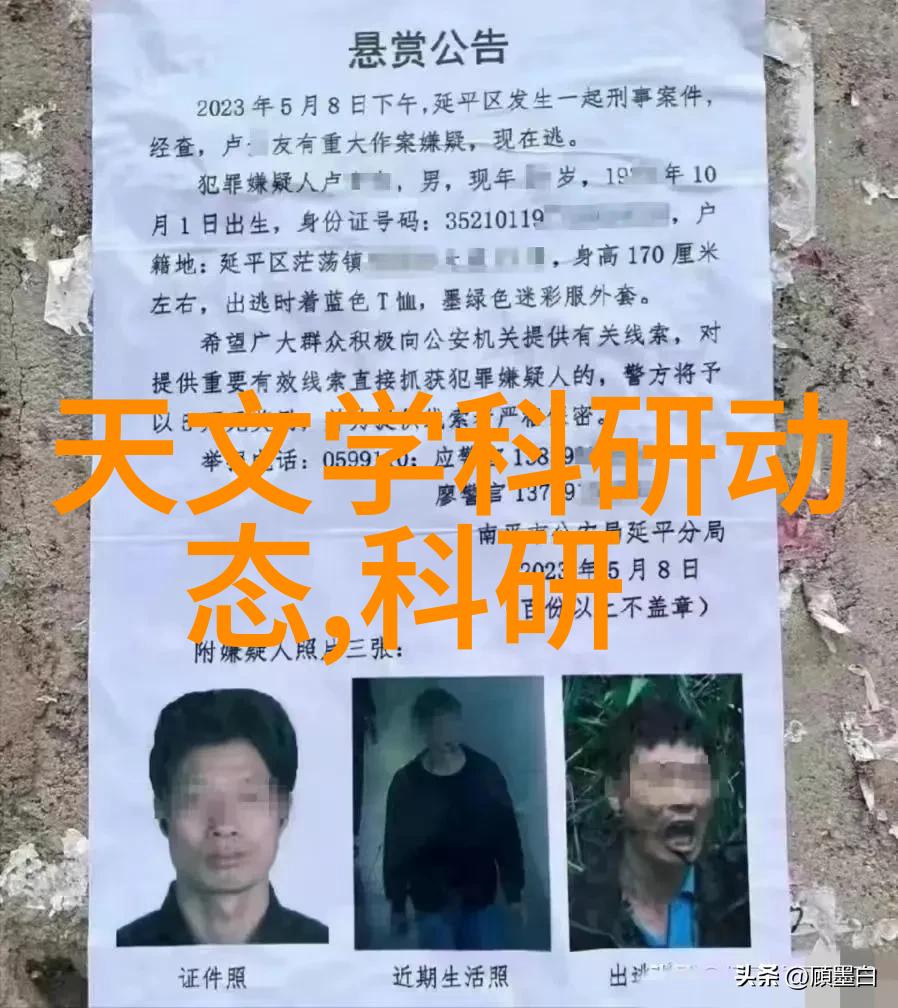 悬赏公告
2023年5月8日下午，延平区发生一起刑事案件，
经查，卢 友有重大作案嫌疑，现在逃。
犯罪嫌疑人卢 ，男，现年 岁，19 年10
月1日出生，身份证号码：35210119 ，户
籍地：延平区茫荡镇 ，身高170厘米
左右，出逃时着蓝色T恤，墨绿色迷彩服外套。
希望广大群众积极向公安机关提供有关线索，对
提供重要有效线索直接抓获犯罪嫌疑人的，警方将予
以
天文学科研动
举报电话：0599110；应警官
廖警官
态,科研
南平市公安局延平分局
2023年5月8日
百份以上不盖章）
附嫌疑人照片三张：
证件照 近期生活照 出逃
头条 @顾墨白